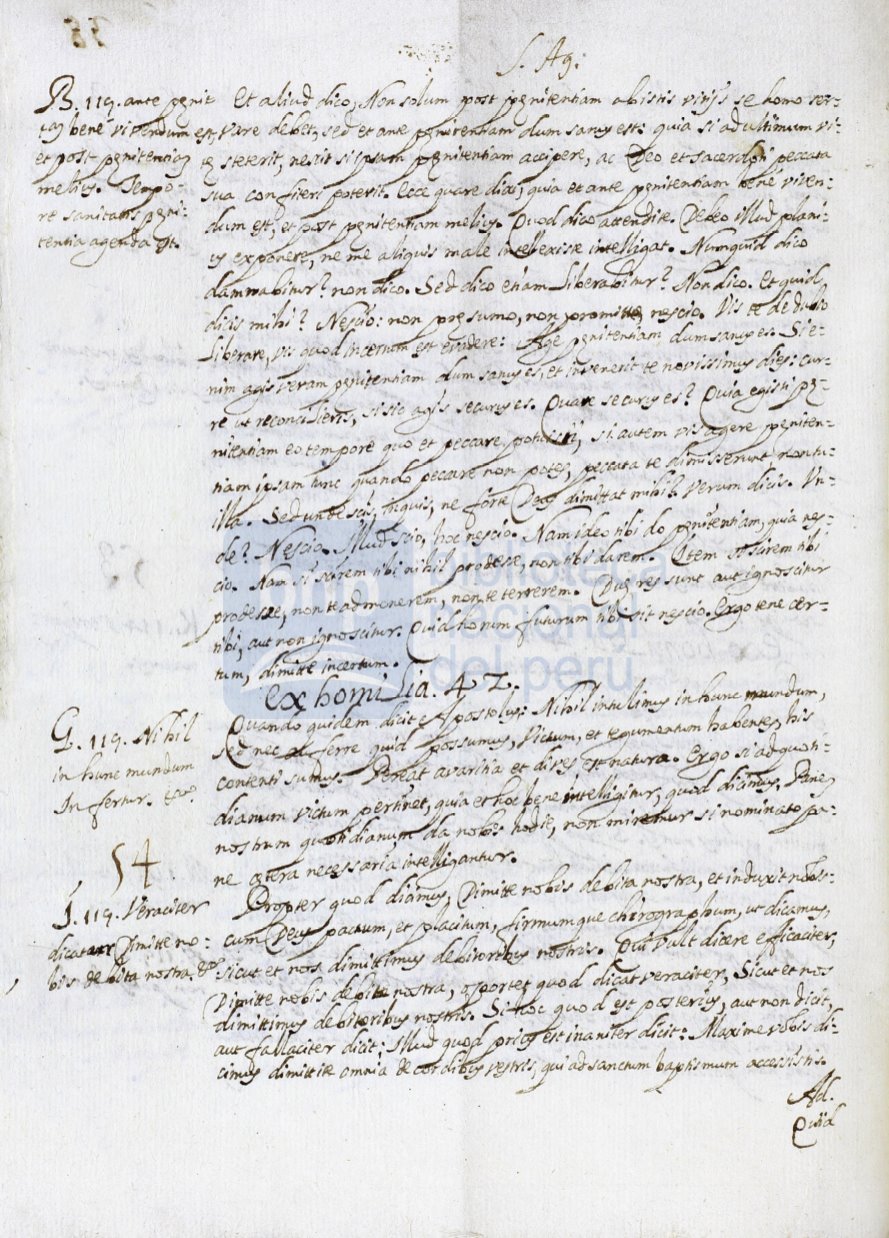 S. Ag:
B. 119. ante penit
tiã bene vivendum est,
et post penitentiã
melius. Tempo
re sanitatis peni-
tentia agenda est.
Et aliud dico, Non solum post penitentiam ab istis vitijs se homo ser-
vare debet, sed et ante penitentiam dum sanus est: quia si ad ultimum vi-
te steterit, nescit si ipsam penitentiam accipere, ac Deo et sacerdoti peccata
sua confiteri poterit. Ecce quare dixi, quia et ante penitentiam bene viven-
dum est, et post penitentiam melius. Quod dico attendite. Debeo illud plani-
us exponere, ne me aliquis male intellexisse intelligat. Numquid dico
damnabitur? non dico. Sed dico etiam Liberabitur? Non dico. Et quid
dicis mihi? Nescio: non presumo, non promitto, nescio. Vis te de dubio
Liberare, vis quod incertum est evadere: Age penitentiam dum sanus es. Si e-
nim agis veram penitentiam dum sanus es, et invenerit te novissimus dies: cur-
re ut reconcilieris, si sic agis securus es. Quare securus es? Quia egisti pe-
nitentiam eo tempore quo et peccare potuisti, si autem vis agere peniten-
tiam ipsam tunc quando peccare non potes, peccata te dimisserunt non tu
illa. Sed unde scis, inquis, ne forte Deus dimittat mihi? Verum dicis. Un-
de? Nescio. Illud scio, hoc nescio. Nam ideo tibi do penitentiam, quia nes-
cio. Nam si scirem tibi nihil prodesse, non tibi darem. Item si scirem tibi
prodesse, non te admonerem, non te terrerem. Due res sunt aut ignoscitur
tibi, aut non ignoscitur. Quid horum futurum tibi sit nescio. Ergo tene cer-
tum, dimitte incertum.
Ex homilia. 42.
G. 119. Nihil
in hunc mundum
Infertur.
Quando quidem dicit Apostolus: Nihil intulimus in hunc mundum,
sed nec auferre quid possumus, Victum, et tegumentum habentes, his
contenti sumus. Pereat avaritia et dives est natura. Ergo si ad quoti-
dianum victum pertinet, quia et hoc bene intelligitur, quod dicimus, Panem
nostrum quotidianum da nobis hodie, non miremur si nominato pa-
ne cetera necessaria intelligantur.
54
J. 119. Veraciter
dicatur Dimitte no-
bis debita nostra. &c
Propter quod dicimus, Dimitte nobis debita nostra, et induxit nobis-
cum Deus pactum, et placitum, firmumque chirographum, ut dicamus,
sicut et nos dimittimus debitoribus nostris. Qui vult dicere efficaciter,
Dimitte nobis debita nostra, oportet quod dicat veraciter, Sicut et nos
dimittimus debitoribus nostris. Si hoc quod est posterius, aut non dicit,
aut fallaciter dicit; Illud quod prius est inaniter dicit: Maxime vobis di-
cimus dimittite omnia de cordibus vestris, qui ad sanctum baptismum accessistis.
Ad.
Quid
biblioteca
nacional
del perú